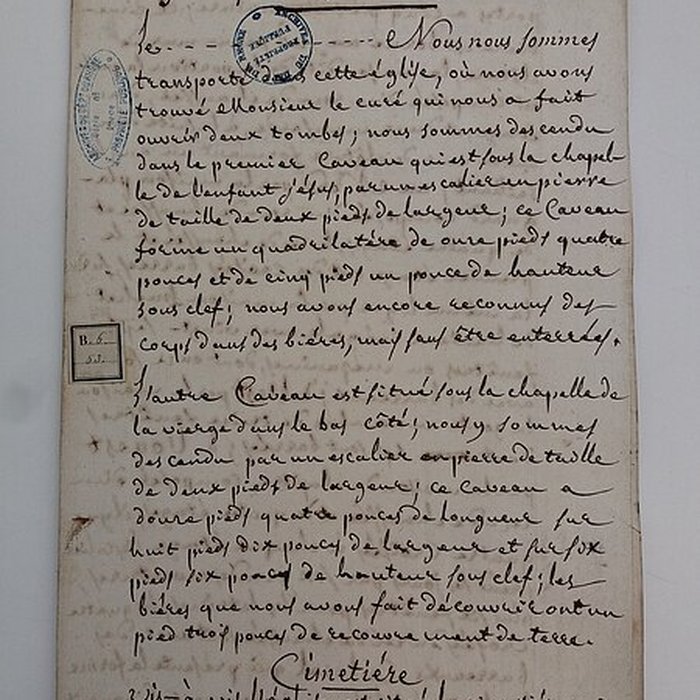 Le - - - - - - - - - Nous nous sommes
transporté dans cette église, où nous avons
trouvé Monsieur le curé qui nous a fait
ouvrir deux tombes; nous sommes descendu
dans le premier Caveau qui est sous la chapel-
le de l'enfant jésus, par un escalier en pierre
de taille de deux pieds de largeur; ce Caveau
forme un quadrilatére de onze pieds quatre
pouces et de cinq pieds un pouce de hauteur
sous clef; nous avons encore reconnus des
corps dans des biéres, mais sans être enterrées.
L'autre Caveau est situé sous la chapelle de
la vierge dans le bas côté; nous y sommes
descendu par un escalier en pierre de taille
de deux pieds de largeur; ce caveau a
douze pieds quatre pouces de longueur sur
huit pieds dix pouces de largeur et sur six
pieds six pouces de hauteur sous clef; les
biéres que nous avons fait découvrir ont un
pied trois pouces de recouvrement de terre.
Cimetiére
B. 5.
53.